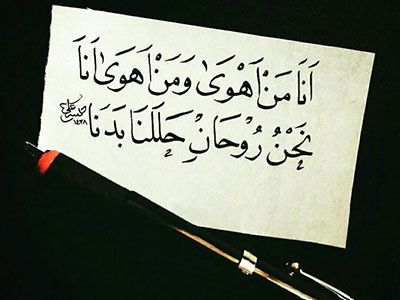 اَنَا مَنْ اَهْوَىٰ وَمَنْ اَهْوَىٰ اَنَا
نَحْنُ رُوْحَانِ حَلَلْنَا بَدَنَا